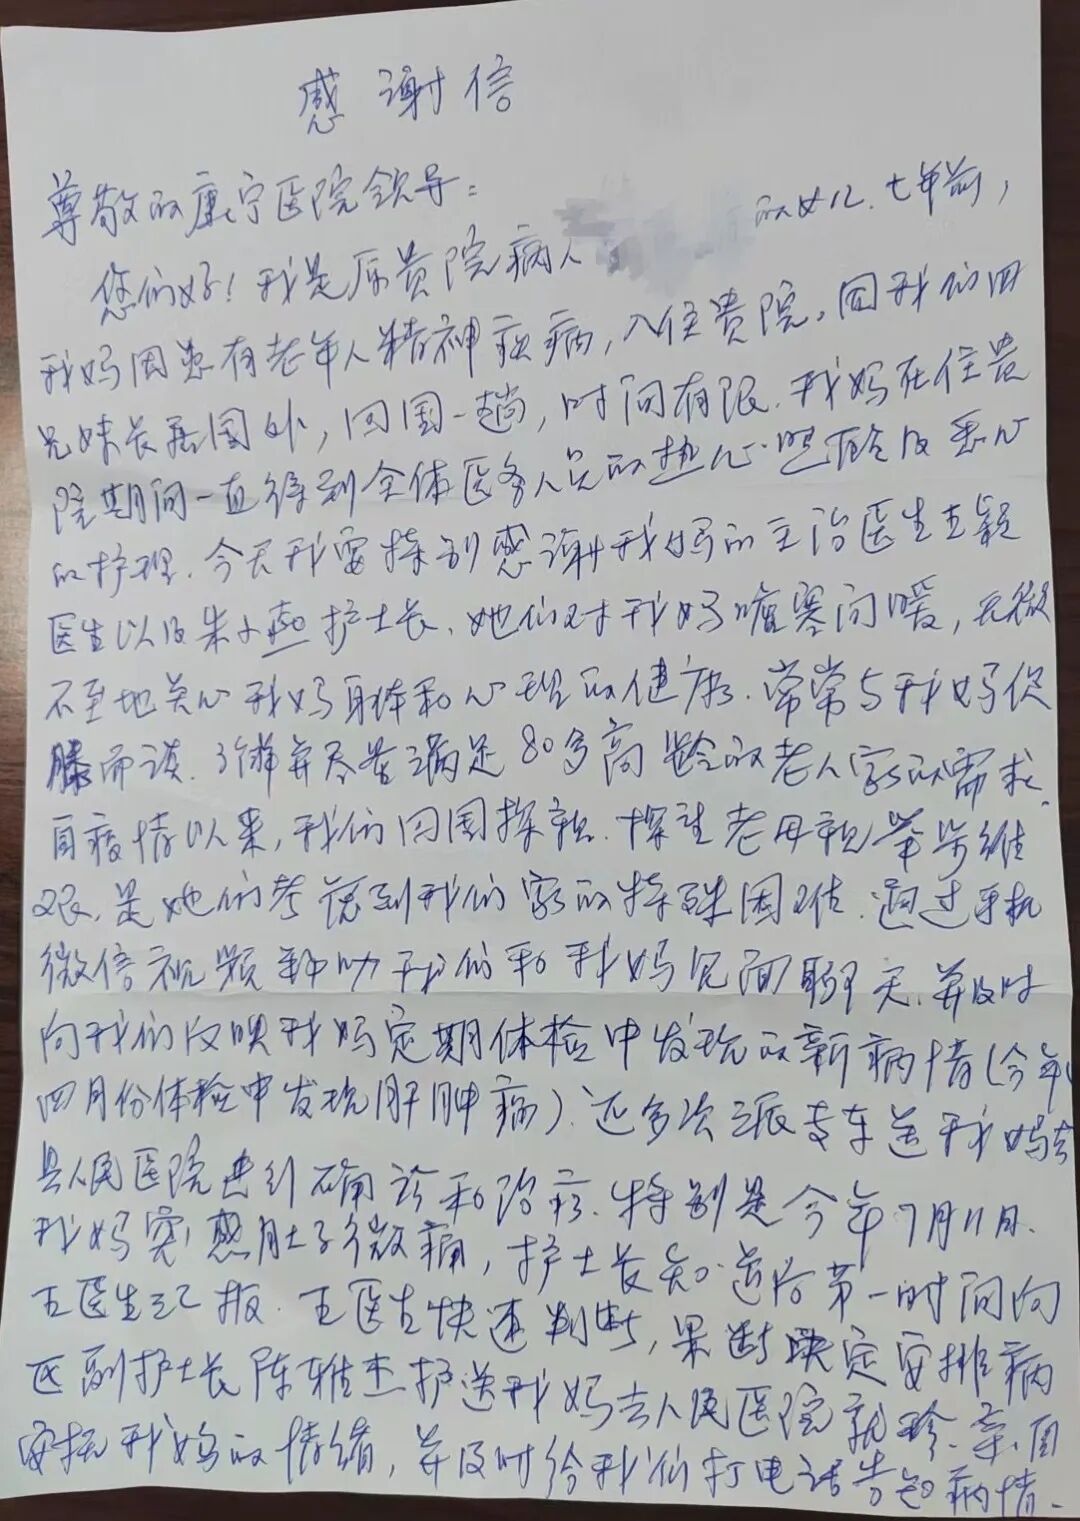 感谢信
尊敬的康宁医院领导：
您们好！我是原贵院病人 的女儿.七年前，
我妈因患有老年人精神疾病，入住贵院。因我们四
兄妹长居国外，回国一趟，时间有限.我妈在住贵
院期间一直得到全体医务人员的热心照顾及悉心
的护理.今天我要特别感谢我妈的主治医生王颖
医生以及朱小燕护士长、她们对我妈嘘寒问暖，无微
不至地关心我妈身体和心理的健康.常常与我妈促
膝而谈.了解并尽量满足80多高龄的老人家的需求.
自疫情以来，我们回国探亲.探望老母亲举步维
艰.是她们考虑到我们家的特殊困难.通过手机
微信视频帮助我们和我妈见面聊天.并及时
向我们反映我妈定期体检中发现的新病情(今年
四月份体检中发现肝肿病).还多次派专车送我妈去
县人民医院进行确诊和治疗.特别是今年7月11日.
我妈突感肚子微痛，护士长知道后第一时间向
王医生汇报.王医生快速判断，果断决定安排病
区副护士长陈雅杰护送我妈去人民医院就诊.
安抚我妈的情绪，并及时给我们打电话告知病情.